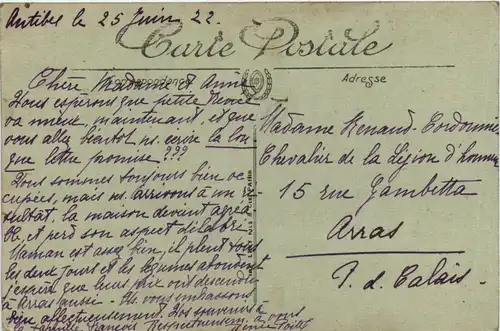 Antibes le 25 Juin 22.
Carte Postale
Correspondance
Adresse
Chère Madame et Amie
Nous espérons que petite Renée
va mieux, maintenant et que
vous allez bientôt ns. écrire la lon
gue lettre promise ???
Nous sommes toujours bien oc-
cupées, mais ns. arrivons à un ré-
sultat. la maison devient agréa
ble, et perd son aspect délabré
Maman est assez bien, il pleut tous
les deux jours et les légumes abondent
j'espère que leur prix ont descendu
à Arras aussi - Ns vous embrassons
bien affectueusement. Nos souvenirs à
la famille Respectueusement à vous
Madame Renaud-Cordonnier
Chevalier de la Légion d'honneur
15 rue Gambetta
Arras
P. d. Calais-